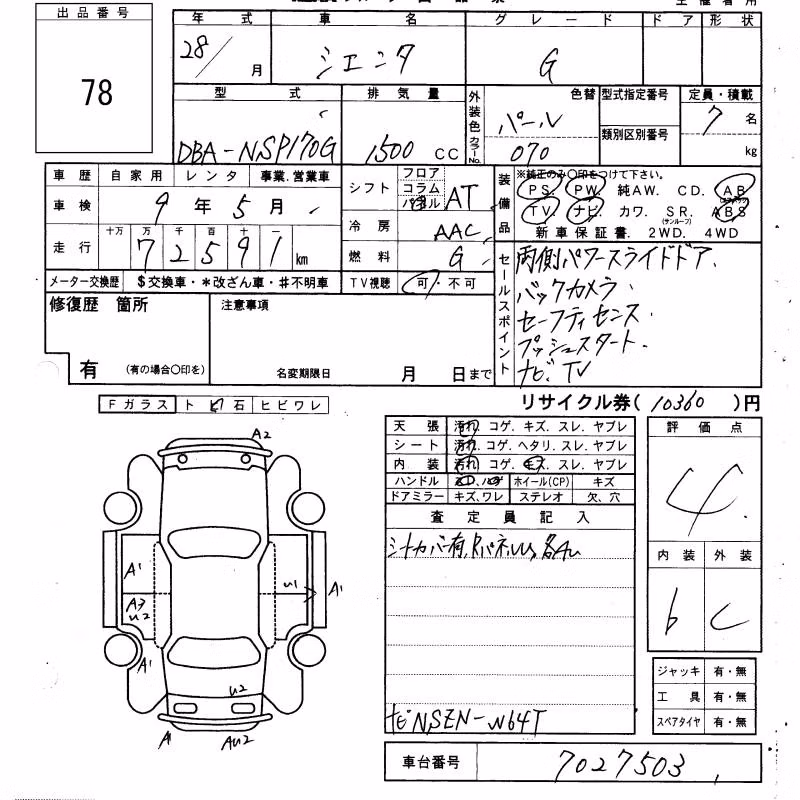 出品番号
78
年式 車名 グレード ドア 形状
28/ 月 シエンタ G
型式 排気量 外装色 カラーNo. 色替 型式指定番号 定員・積載
DBA-NSP170G 1500 CC パール 070 類別区別番号 7名 kg
車歴 自家用 レンタ 事業.営業車
車検 9年5月
走行 十万 万 千 百 十 一
72591 km
メーター交換歴 $交換車・*改ざん車・#不明車
シフト フロア コラム パネル AT
冷房 AAC
燃料 G
TV視聴 可・不可
装備品 ※純正のみ〇印をつけて下さい。
PS. PW. 純AW. CD. AB
TV. ナビ. カワ. SR. ABS
(サンルーフ)
新車保証書. 2WD. 4WD
セールスポイント
両側パワースライドドア.
バックカメラ
セーフティセンス
プッシュスタート.
ナビ、TV
修復歴 箇所 注意事項
有 (有の場合〇印を) 名変期限日 月 日まで
リサイクル券(10360)円
Fガラス トビ石 ヒビワレ
天張 汚れ. コゲ. キズ. スレ. ヤブレ
シート 汚れ. コゲ. ヘタリ. スレ. ヤブレ
内装 汚れ. コゲ. キズ. スレ. ヤブレ
ハンドル ホイール(CP) キズ
ドアミラー キズ、ワレ ステレオ 欠、穴
評価点
4
内装 外装
6 C
査定員記入
シートカバー有, RパネルU, 各AU
ナビNSZN-W64T
A2
A1
A3
U2
A1
U1
A1
U2
A1
AU2
ジャッキ 有・無
工具 有・無
スペアタイヤ 有・無
車台番号 7027503